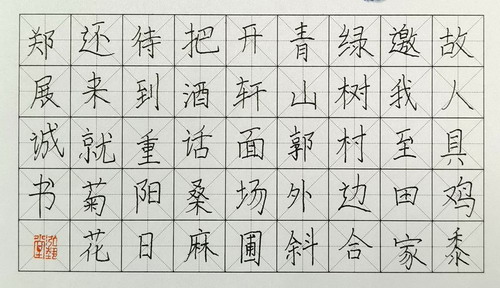 故人具鸡黍
邀我至田家
绿树村边合
青山郭外斜
开轩面场圃
把酒话桑麻
待到重阳日
还来就菊花
郑展城书